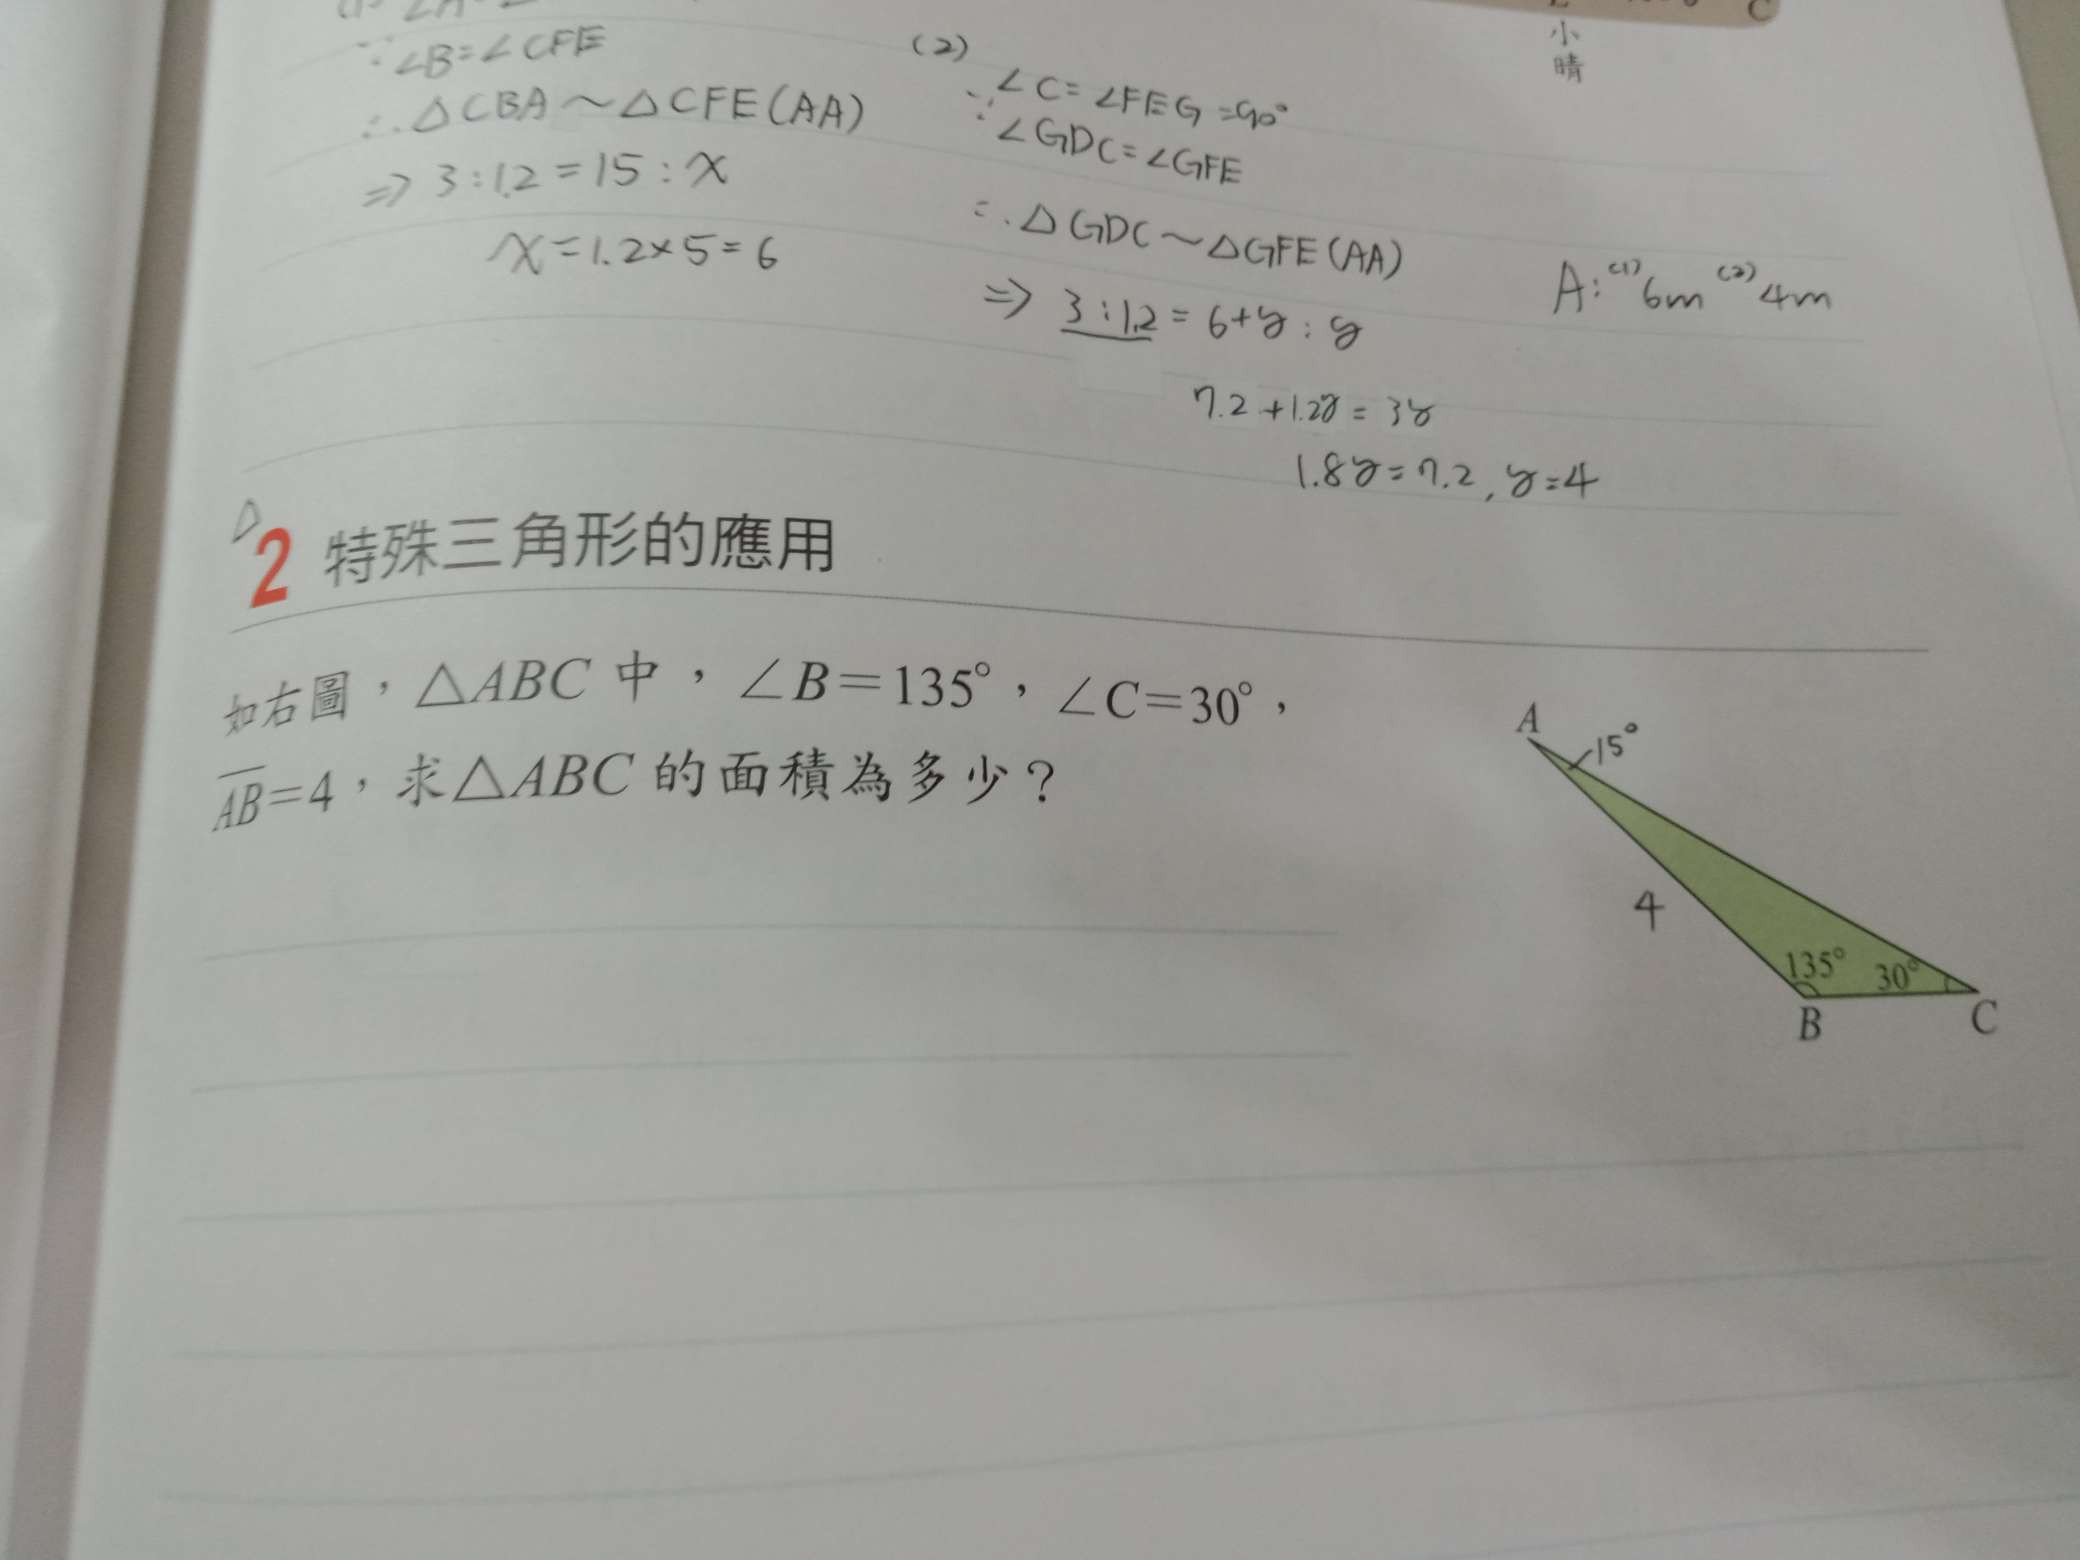 C
小
晴
∵ ∠B=∠CFE
∴ △CBA～△CFE(AA)
⇒ 3:1.2=15:x
x=1.2×5=6
(2)
∵ ∠C=∠FEG=90°
∠GDC=∠GFE
∴ △GDC～△GFE(AA)
⇒ 3:1.2=6+y:y
7.2+1.2y=3y
1.8y=7.2, y=4
A:(1)6m (2)4m
2 特殊三角形的應用
如右圖，△ABC 中，∠B=135°，∠C=30°，
AB=4，求△ABC 的面積為多少？
A
15°
4
135° 30°
B
C